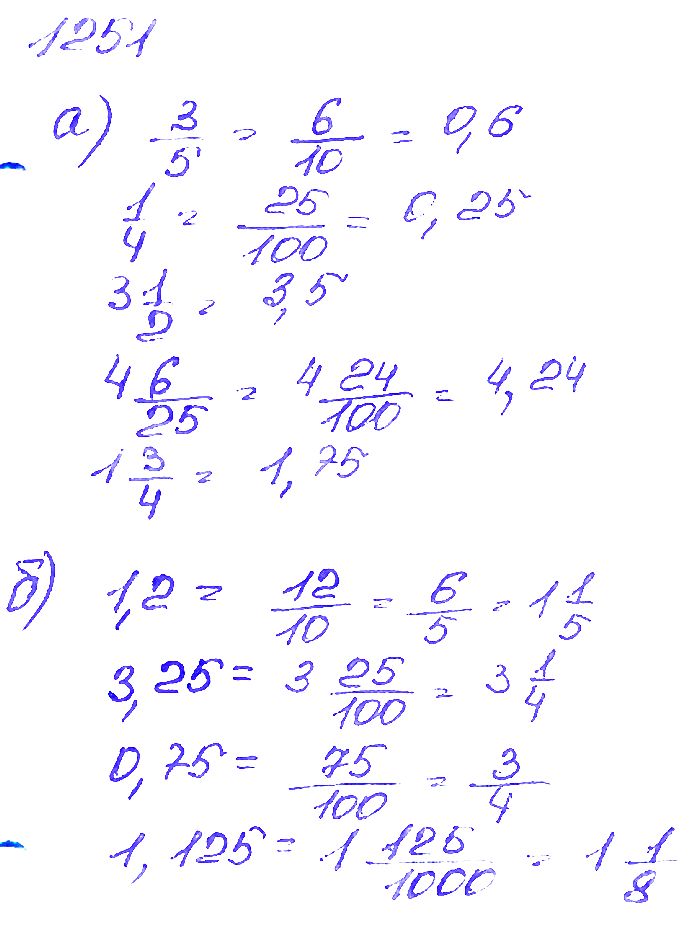 1251
а) 3/5 = 6/10 = 0,6
1/4 = 25/100 = 0,25
3 1/2 = 3,5
4 6/25 = 4 24/100 = 4,24
1 3/4 = 1,75
б) 1,2 = 12/10 = 6/5 = 1 1/5
3,25 = 3 25/100 = 3 1/4
0,75 = 75/100 = 3/4
1,125 = 1 125/1000 = 1 1/8